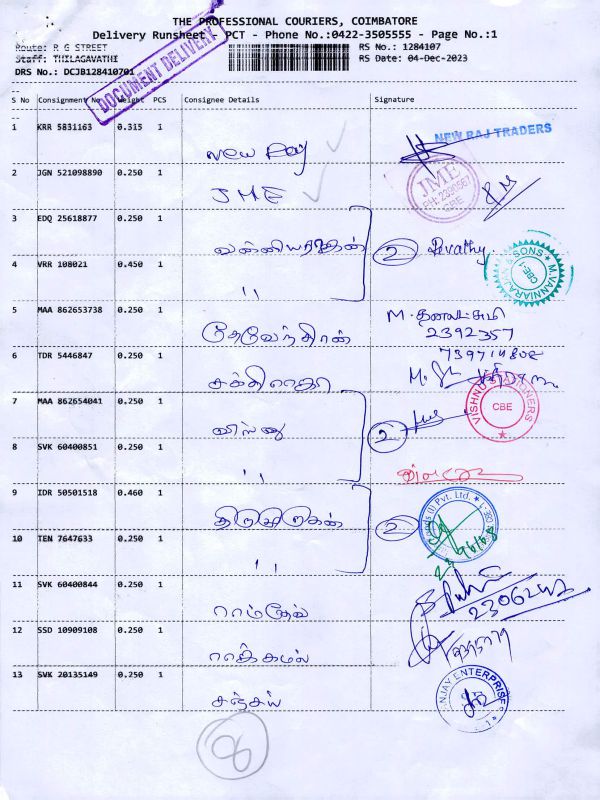 THE PROFESSIONAL COURIERS, COIMBATORE
Delivery Runsheet PCT - Phone No.:0422-3505555 - Page No.:1
Route: R G STREET RS No.: 1284107
Staff: THILAGAVATHI RS Date: 04-Dec-2023
DRS No.: DCJB128410701
DOCUMENT DELIVERY
S No Consignment No Weight PCS Consignee Details Signature
1 KRR 5831163 0.315 1 New Raj NEW RAJ TRADERS
2 JGN 521098890 0.250 1 JME JME PH: 2390567 CBE
3 EDQ 25618877 0.250 1 வன்னியராஜன் 2 Revathy
4 VRR 108021 0.450 1 ,, & SONS * M.VANNIARAJAN CBE-1
5 MAA 862653738 0.250 1 தேவேந்திரன் M. தனலட்சுமி
2392357
6 TDR 5446847 0.250 1
7 MAA 862654041 0.250 1 விஸ்ணு 2 VISHNU CBE
8 SVK 60400851 0.250 1 ,,
9 IDR 50501518 0.460 1 திருமுருகன் 2 Pvt. Ltd.
10 TEN 7647633 0.250 1 ,,
11 SVK 60400844 0.250 1 ராம்தேவ்
12 SSD 10909108 0.250 1 ராஜ்கமல்
13 SVK 20135149 0.250 1 சஞ்சய் NJAY ENTERPRISES
8